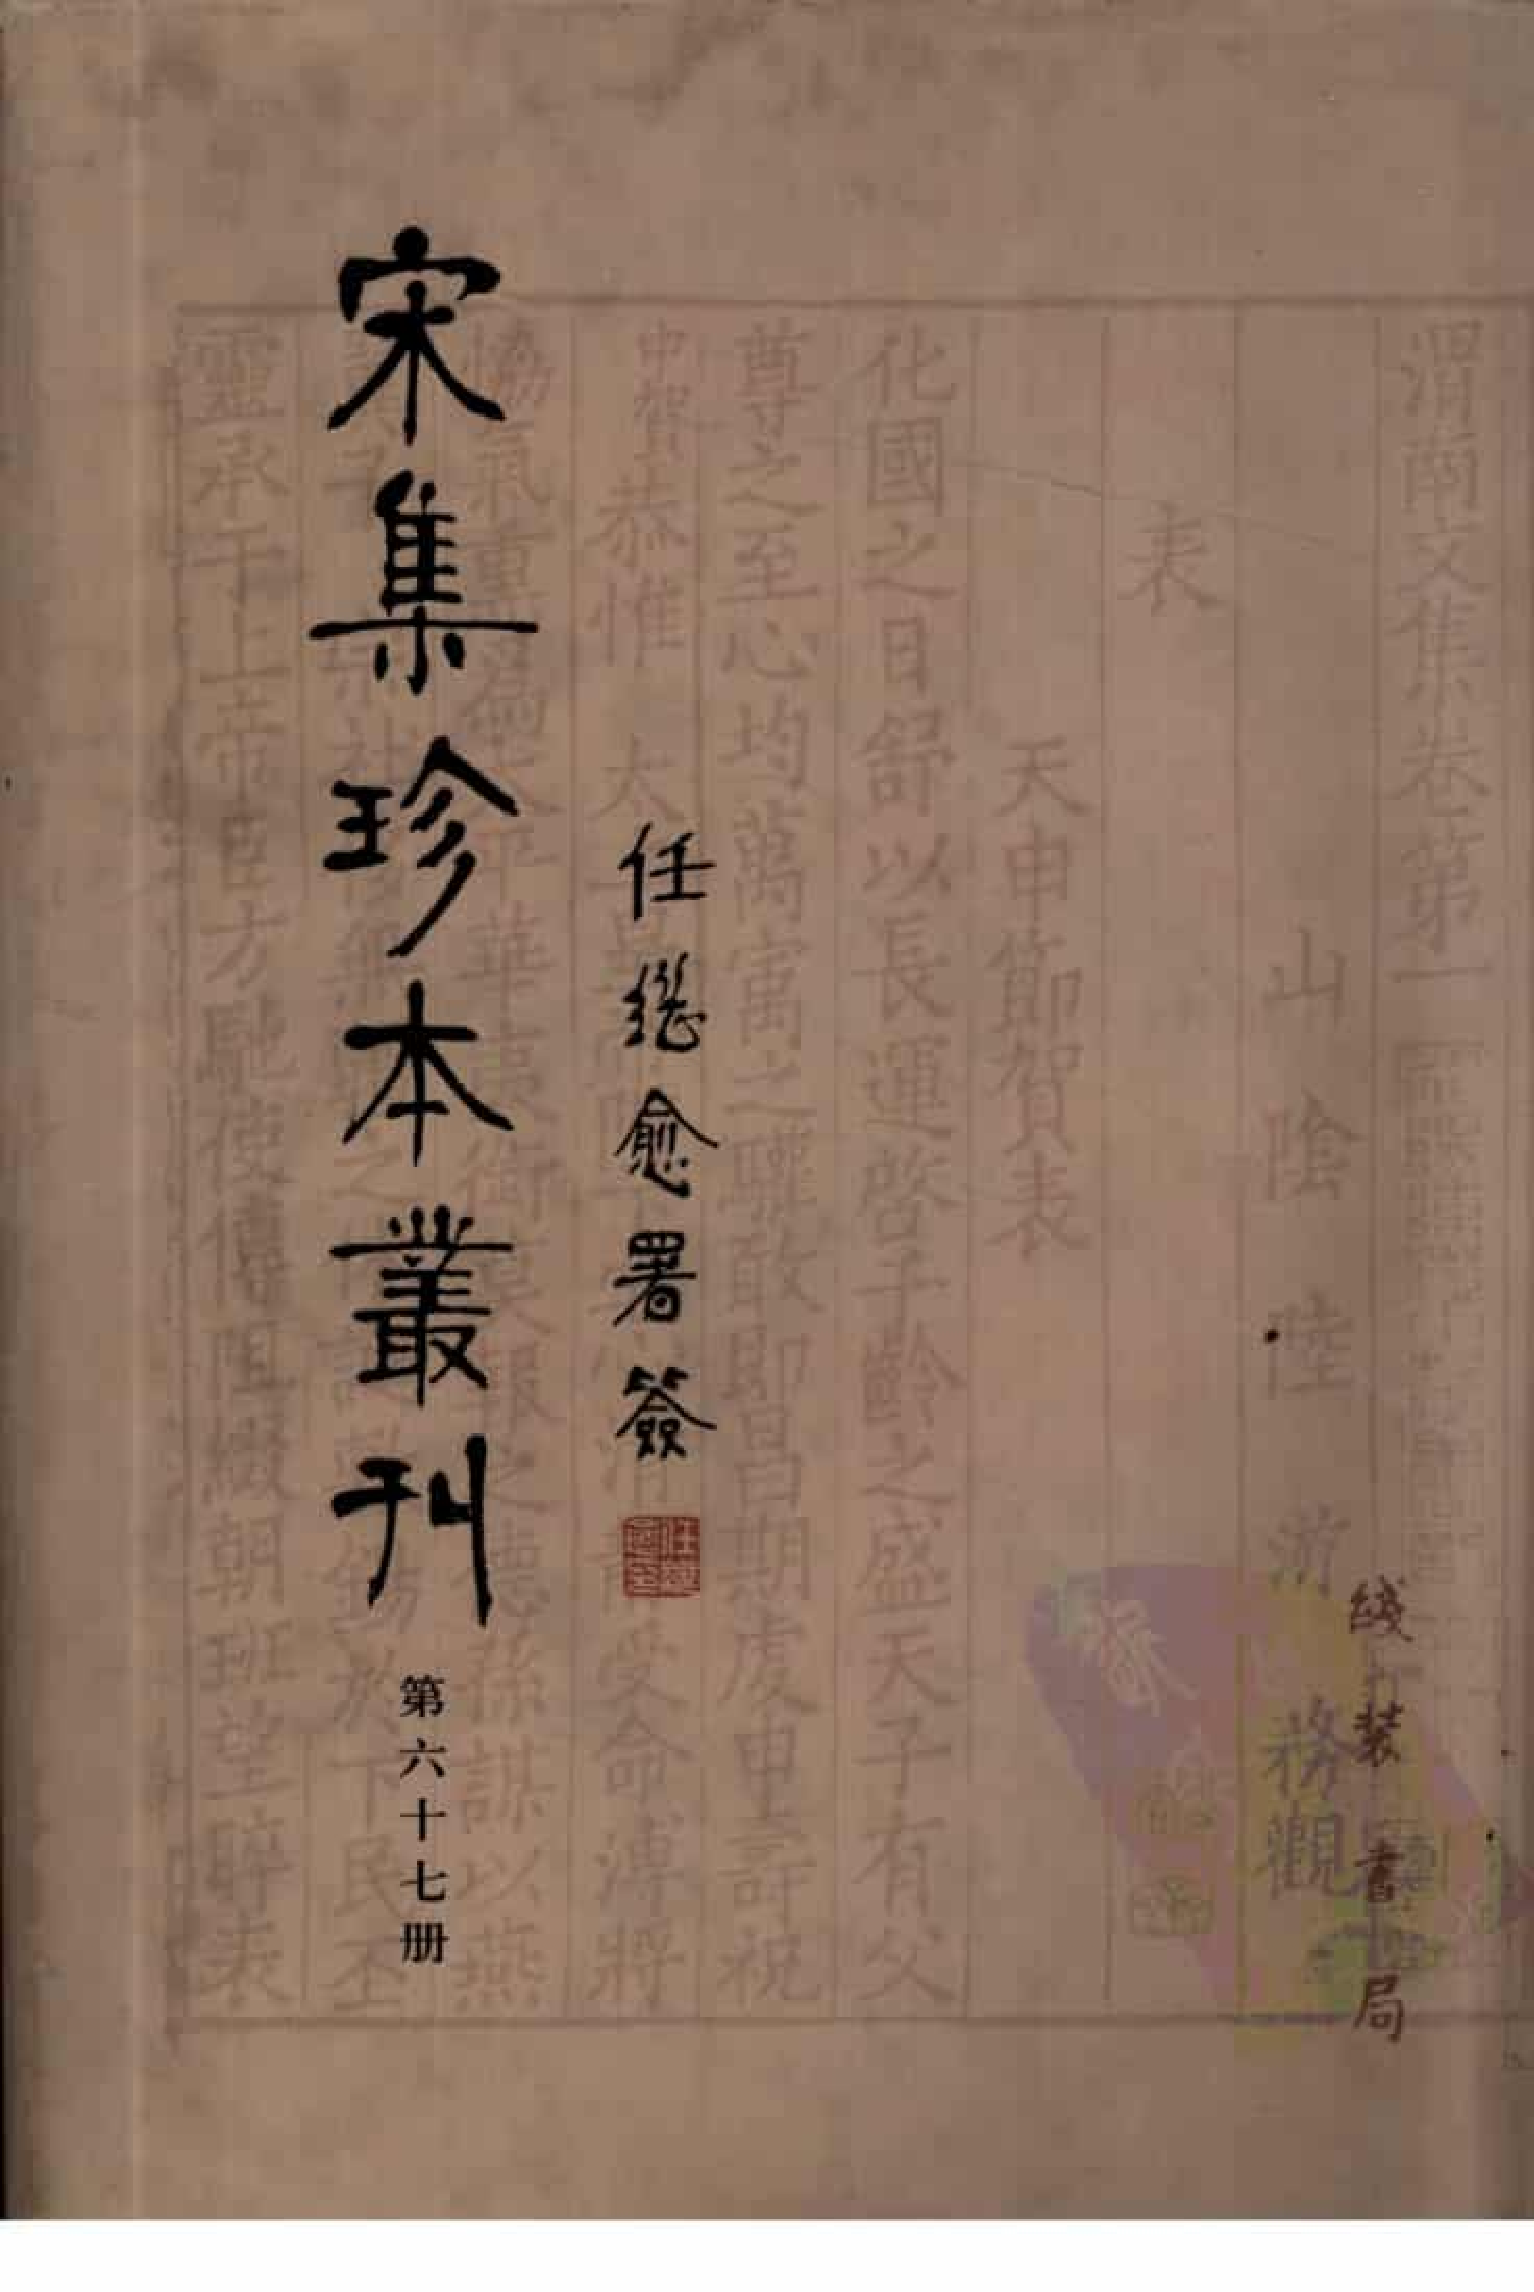 渭南文集卷第一
綫装書局
山陰陸游務觀
表
天申節賀表
化國之日舒以長運啓千齡之盛天子有父
尊之至心均萬寓之驩敢即昌期虔申壽祝
任繼愈署簽
中賀恭惟 太 受命溥將
宋集珍本叢刊
第六十七册
靈承于上帝臣方馳使傳阻綴朝班望睟表